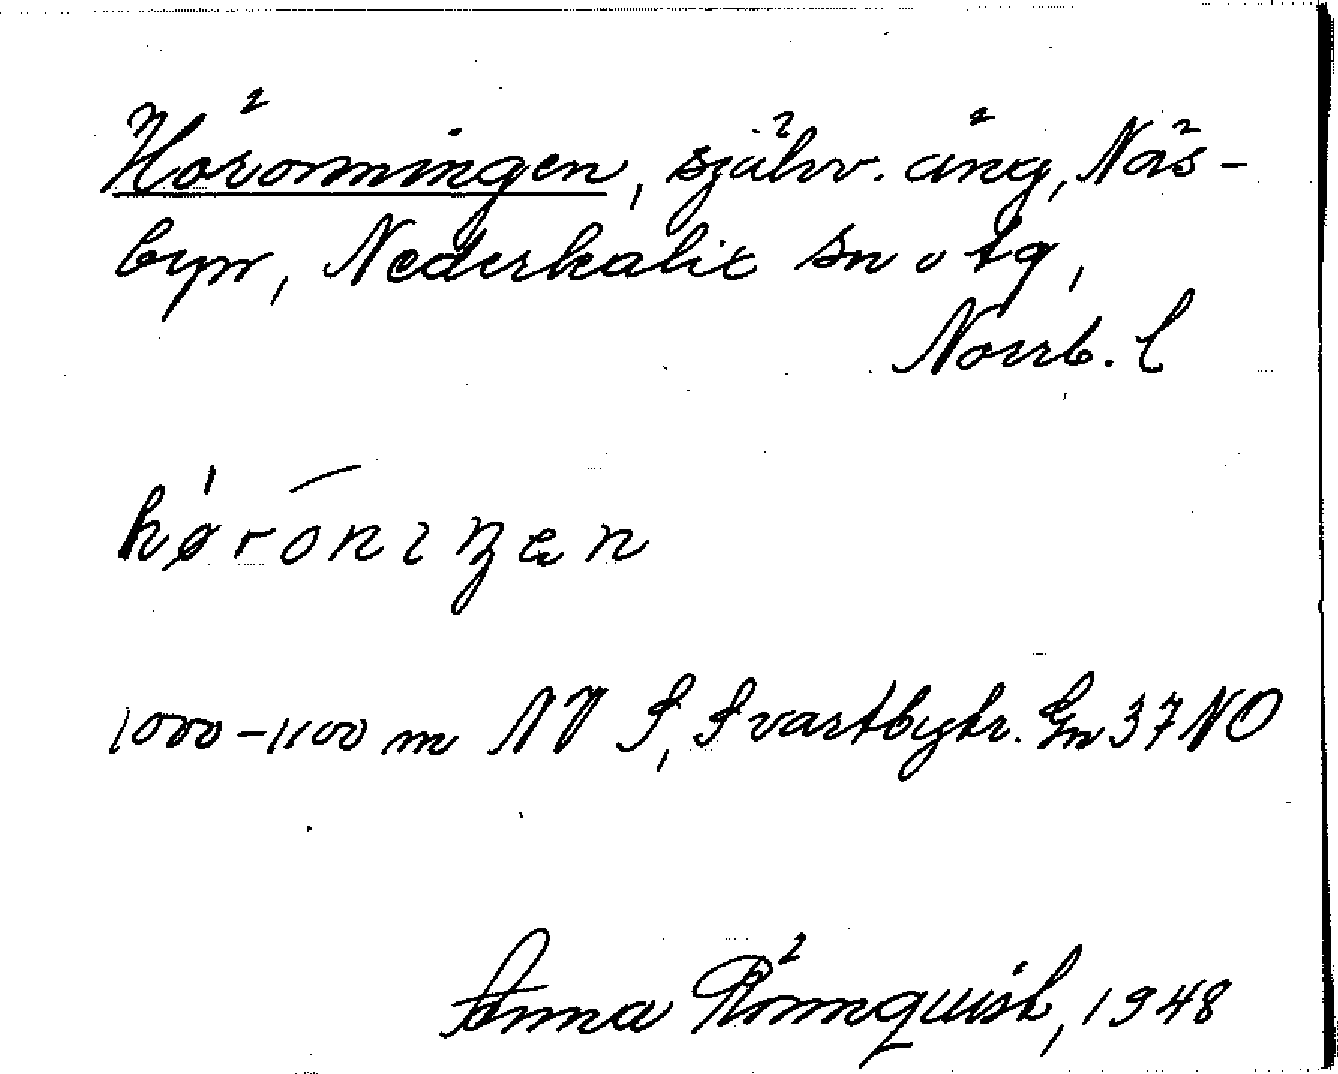 Höronningen, självv. äng, Näs-
byn, Nederkalix sn o tg,
Norrb. l
hørónıŋen
1000-1100 m NV S, Svartbytr. Gn 37 NO
Anna Rönnquist, 1948